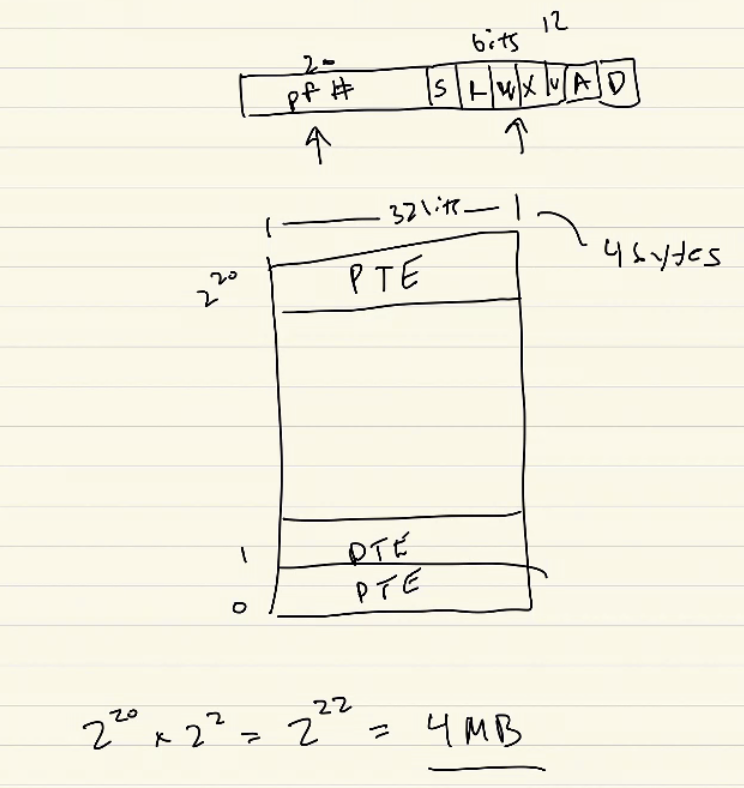 bits 12
20
pf # S L W X V A D
32 bits
4 bytes
2^20
PTE
1 PTE
0 PTE
2^20 x 2^2 = 2^22 = 4 MB